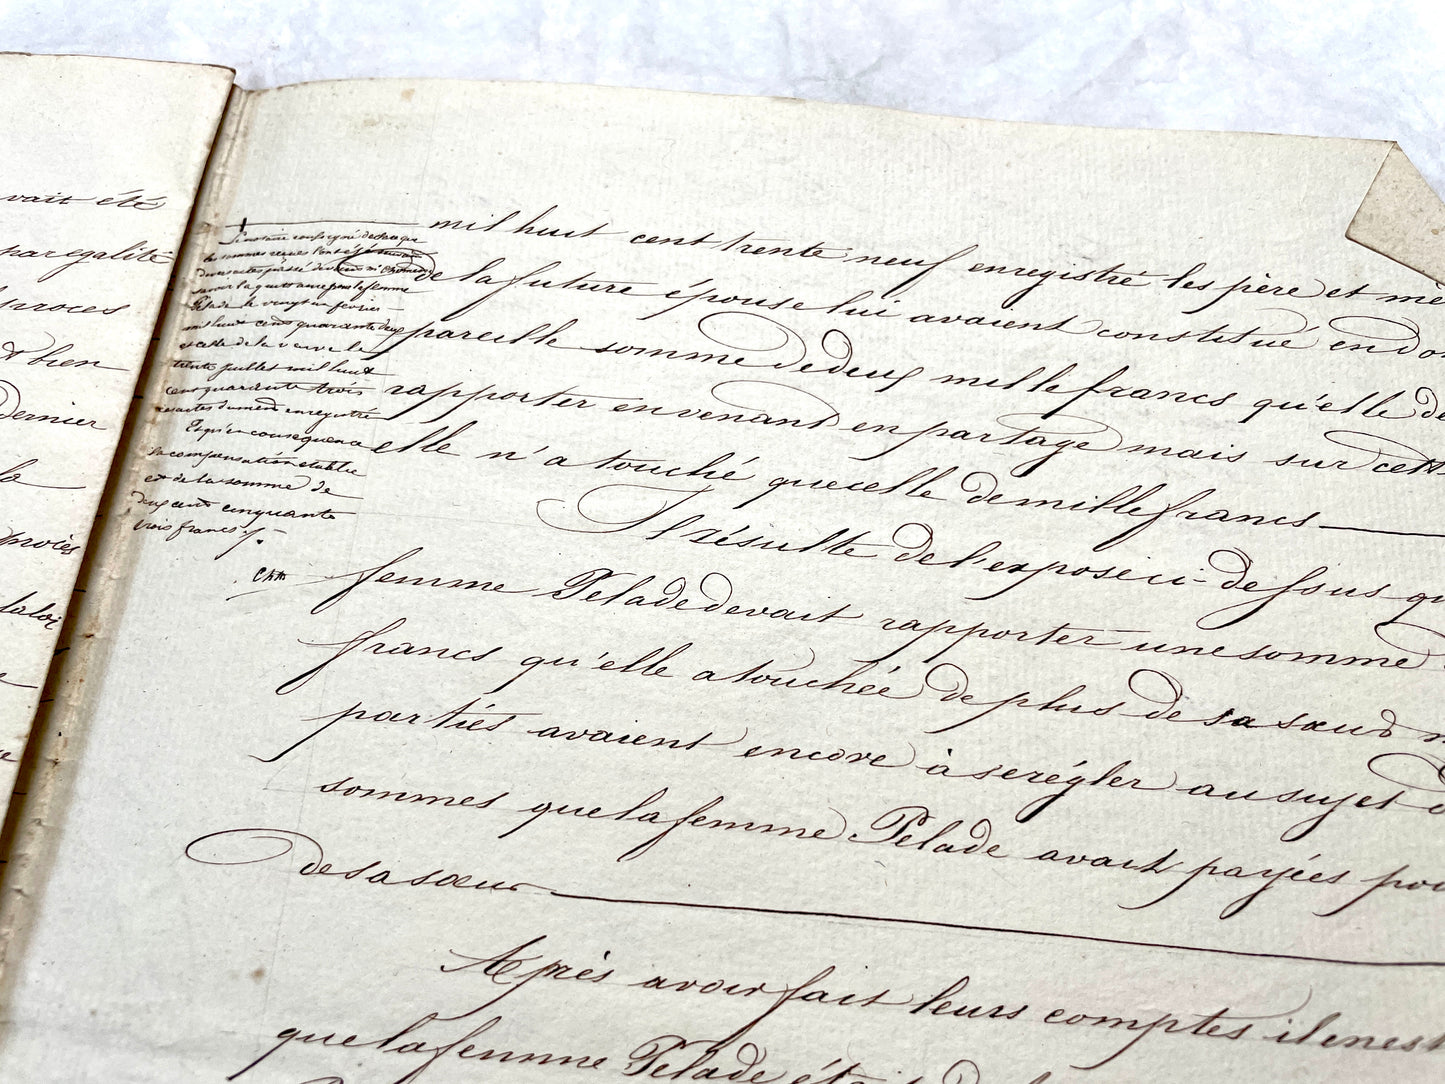 vait été
par egalité
proces
bien
Dernier
la
procès
la loi
mil huit cent trente neuf enregistré les père et mè
de la future épouse lui avaient constitué en do
pareille somme de deux mille francs qu'elle de
rapporter en venant en partage mais sur cett
elle n'a touché que celle de mille francs
Il résulte de l'exposé ci-dessus qu
femme Pelade devait rapporter une somme
francs qu'elle a touchée de plus de sa sœur
parties avaient encore à se régler au sujet d
sommes que la femme Pelade avait payées pou
de sa sœur
Après avoir fait leurs comptes il en est
que la femme Pelade était
Le notaire soussigné déclare que
les sommes reçues l'ont été suivant
deux actes passés devant Me
savoir la quittance par la femme
Pelade le vingt un février
mil huit cent quarante deux
et celle de la veuve le
trente juillet mil huit
cent quarante trois
enregistré
Et qu'en conséquence
la compensation établie
est de la somme de
deux cent cinquante
trois francs